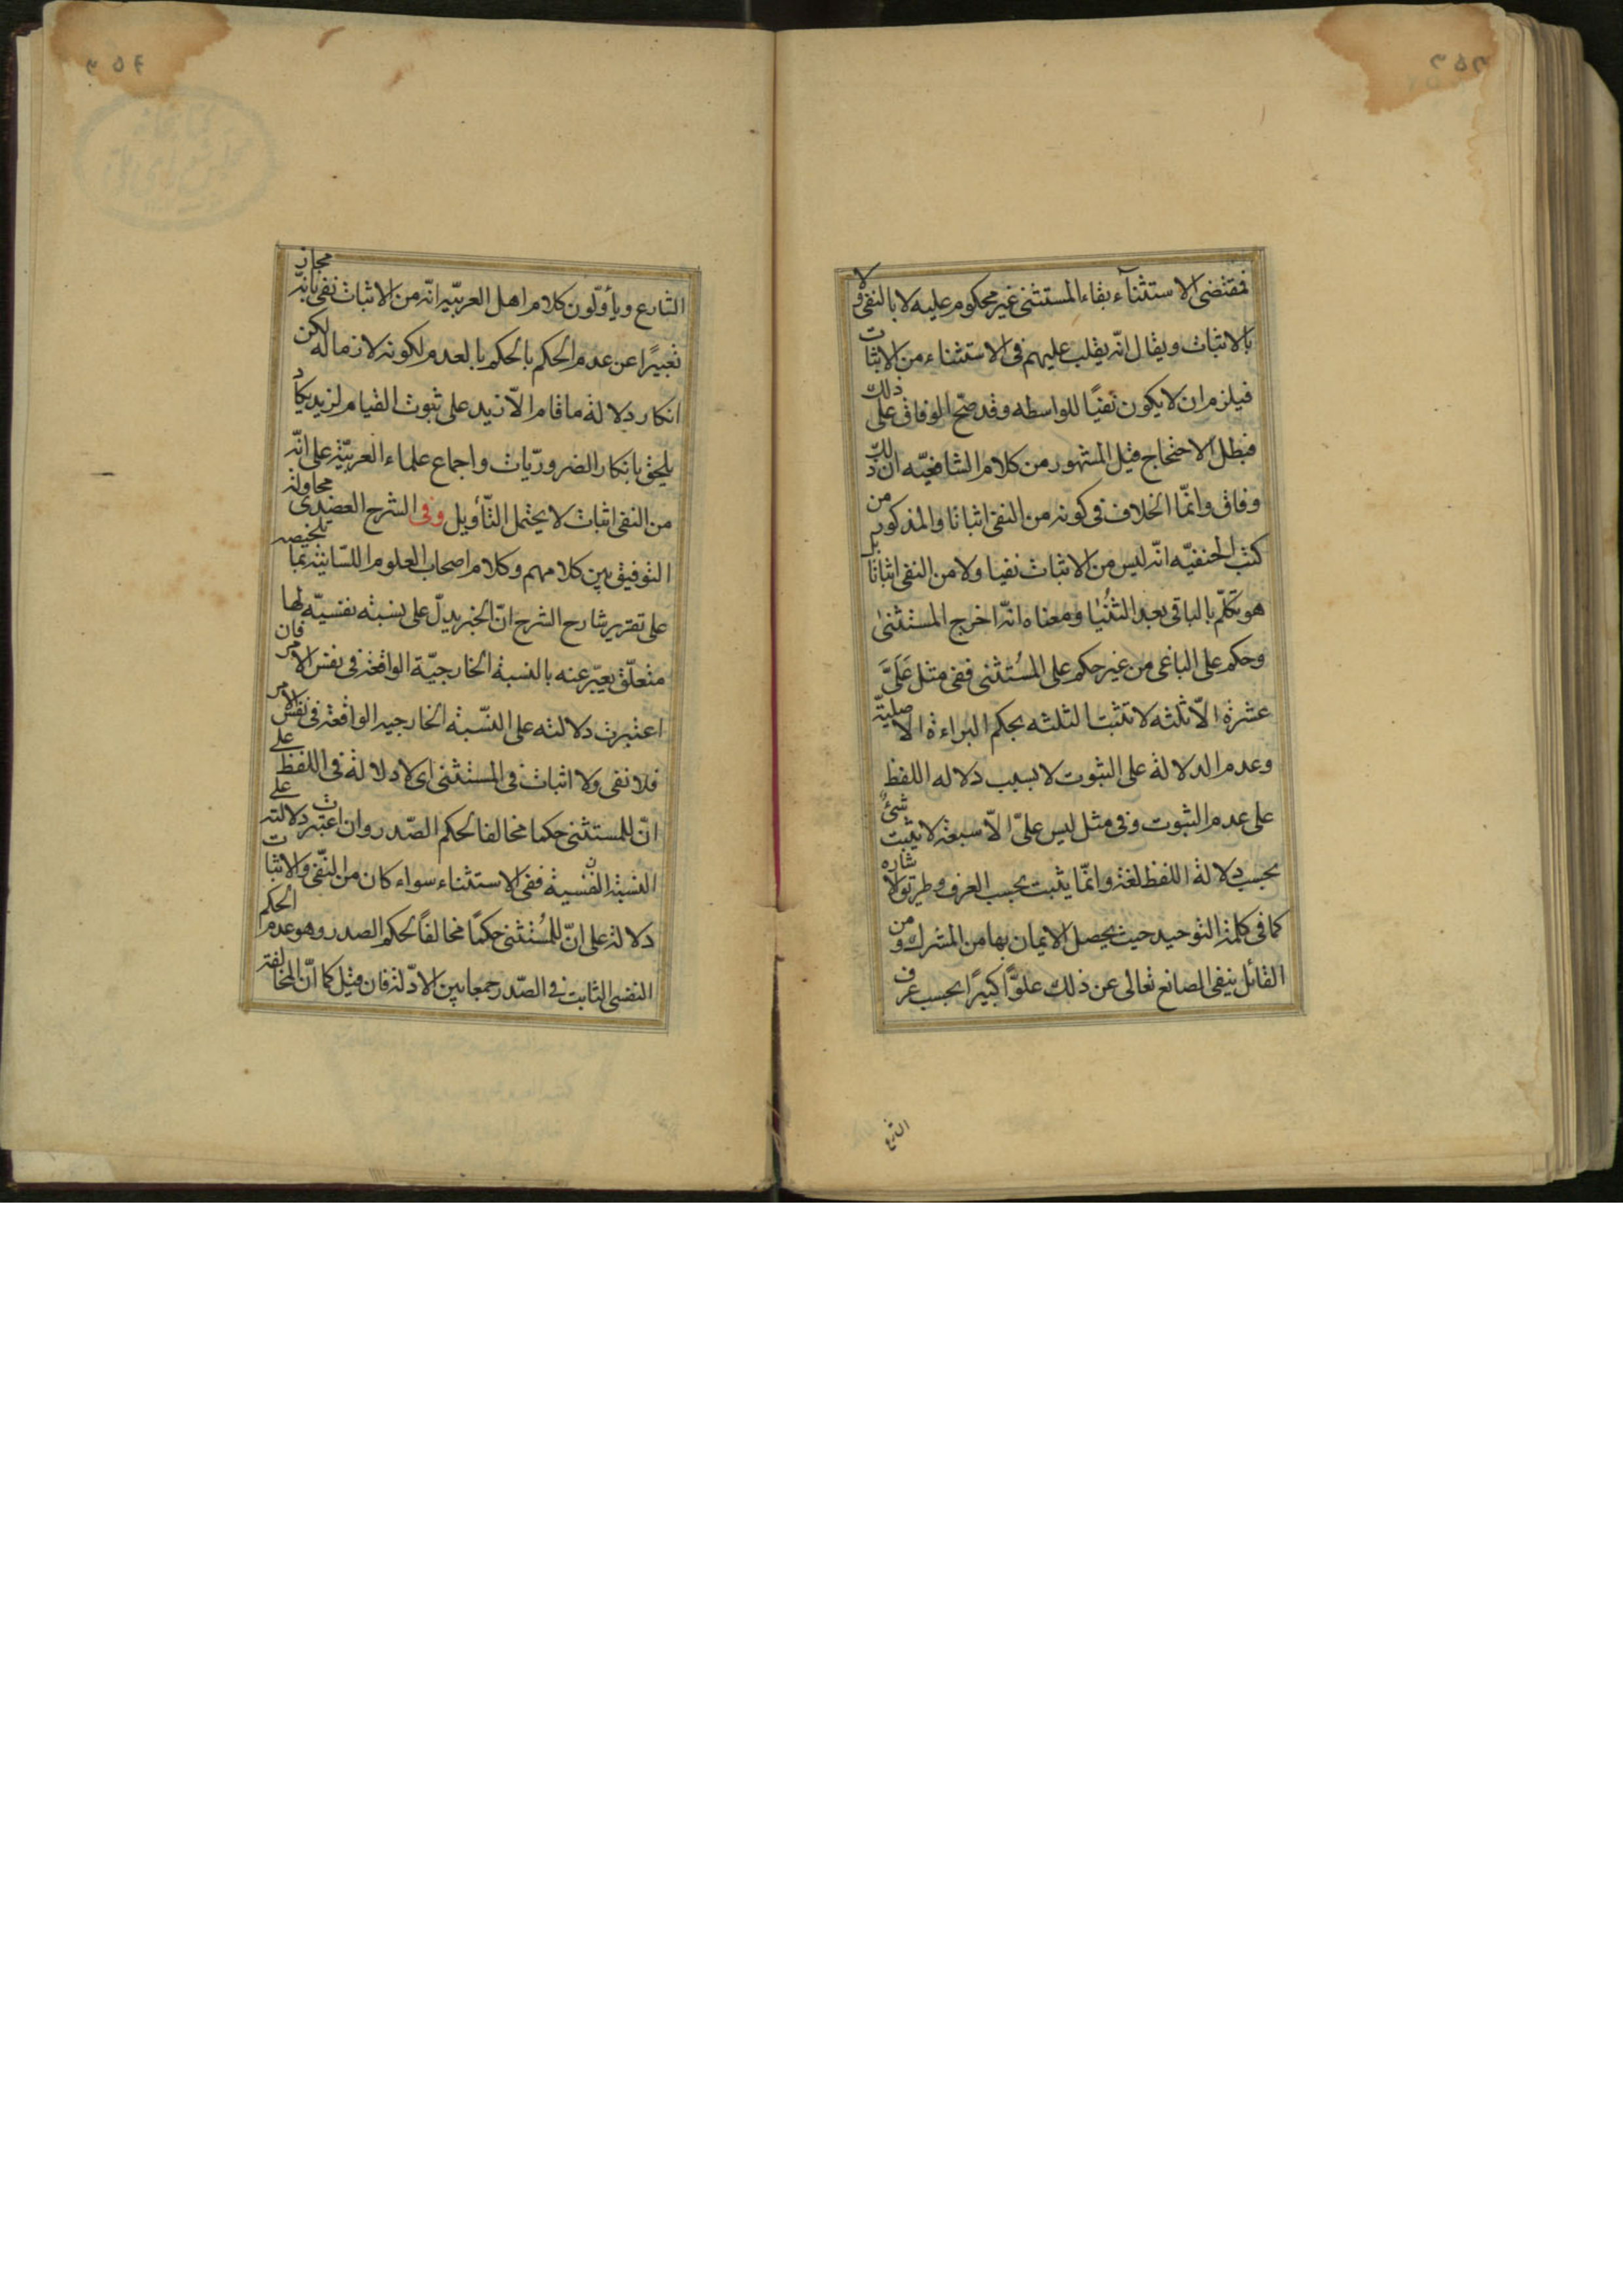 فمقتضى الاستثنآء بقاء المستثنى غير محكوم عليه لا بالنفى ولا
بالاثبات ويقال انّه يقلب عليهم فى الاستثناء من الاثبات
فيلزم ان لا يكون نفيًا للواسطه وقد صحّ الوفاق على ذلك
فبطل الاحتجاج قيل المشهور من كلام الشافعيّه ان ذلك
وفاق وانمّا الخلاف فى كونه من النفى اثباتا والمذكور من
كتب الحنفيّه انه ليس من الاثبات نفيا ولا من النفى اثباتا بل
هو تكلّم بالباقى بعد الثُّنْيا ومعناه انّه اخرج المستثنى
وحكم على الباقى من غير حكم على المُستثنى ففى مثل عَلَىَّ
عشرة الّا ثلثه لا تثبت الثلثه بحكم البراءة الاصليّة
وعدم الدلالة على الثبوت لا بسبب دلاله اللفظ
على عدم الثبوت وفى مثل ليس علىّ الّا سبعة لا يثبت شئٌ
بحسب دلالة اللفظ لغة وانمّا يثبت بحسب العرف وطريق الاشاره
كما فى كلمة التوحيد حيث يحصل الايمان بها من المشرك ومن
القائل بنفى الصانع تعالى عن ذلك علوًّا كبيرًا بحسب عرف
الشرع
الشارع ويأوّلون كلام اهل العربيّه انّه من الاثبات نفى بانّه مجاز
تعبيرًا عن عدم الحكم بالحكم بالعدم لكونه لازما له لكن
انكار دلالة ما قام الّا زيد على ثبوت القيام لزيد يكاد
يلحق بانكار الضروريّات واجماع علماء العربيّة على انّه
من النفى اثبات لا يحتمل التّأويل وفى الشرح العضدى محاولة
التوفيق بين كلامهم وكلام اصحاب العلوم اللسّانيّة بما تلخيصه
على تقرير شارح الشرح انّ الخبر يدلّ على نسبته نفسيّه لها
متعلّق يعبّر عنه بالنسبة الخارجيّة الواقعة فى نفس الامر فان
اعتبرت دلالته على النّسبة الخارجيه الواقعة فى نفس الامر
فلا نفى ولا اثبات فى المستثنى اى لا دلالة فى اللفظ على
انّ للمستثنى حكما مخالفا لحكم الصّدر وان اعتبرت دلالته على
النسبة النفسية ففى الاستثناء سواء كان من النّفى والاثبات
دلالة على انّ للمُستثنى حكمًا مخالفًا لحكم الصدر وهو عدم الحكم
النفسى الثابت فى الصّدر جمعا بين الادّلة فان قيل كما انّ المخالفة